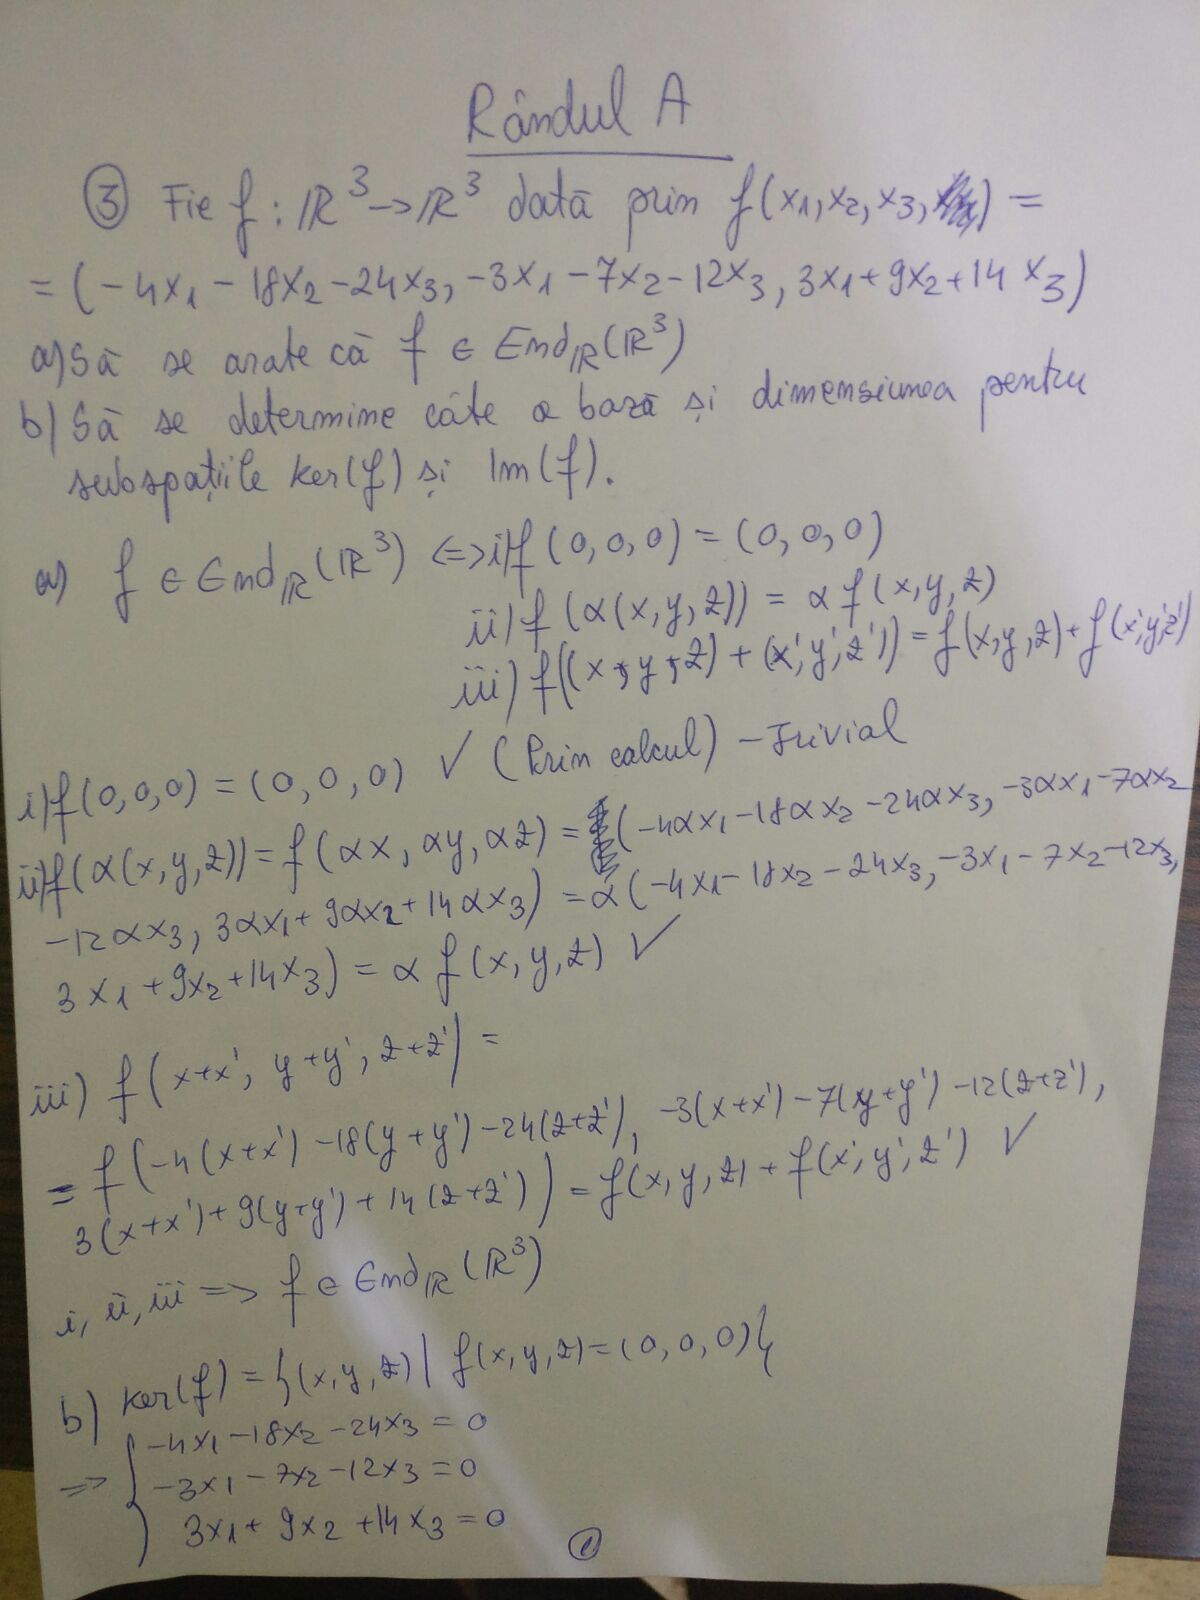 Rândul A
③ Fie f : ℝ³ → ℝ³ dată prin f(x₁, x₂, x₃, ) =
= (-4x₁ - 18x₂ - 24x₃, -3x₁ - 7x₂ - 12x₃, 3x₁ + 9x₂ + 14x₃)
a) Să se arate că f ∈ End_ℝ(ℝ³)
b) Să se determine câte o bază și dimensiunea pentru
subspațiile ker(f) și Im(f).
a) f ∈ End_ℝ(ℝ³) <=> i) f(0, 0, 0) = (0, 0, 0)
ii) f(α(x, y, z)) = α f(x, y, z)
iii) f((x, y, z) + (x', y', z')) = f(x, y, z) + f(x', y', z')
i) f(0, 0, 0) = (0, 0, 0) ✓ (Prin calcul) - Trivial
ii) f(α(x, y, z)) = f(αx, αy, αz) = (-4αx₁ - 18αx₂ - 24αx₃, -3αx₁ - 7αx₂
-12αx₃, 3αx₁ + 9αx₂ + 14αx₃) = α(-4x₁ - 18x₂ - 24x₃, -3x₁ - 7x₂ - 12x₃,
3x₁ + 9x₂ + 14x₃) = α f(x, y, z) ✓
iii) f(x+x', y+y', z+z') =
= f(-4(x+x') - 18(y+y') - 24(z+z'), -3(x+x') - 7(y+y') - 12(z+z'),
3(x+x') + 9(y+y') + 14(z+z')) = f(x, y, z) + f(x', y', z') ✓
i, ii, iii => f ∈ End_ℝ(ℝ³)
b) ker(f) = {(x, y, z) | f(x, y, z) = (0, 0, 0)}
=> { -4x₁ - 18x₂ - 24x₃ = 0
-3x₁ - 7x₂ - 12x₃ = 0
3x₁ + 9x₂ + 14x₃ = 0
①